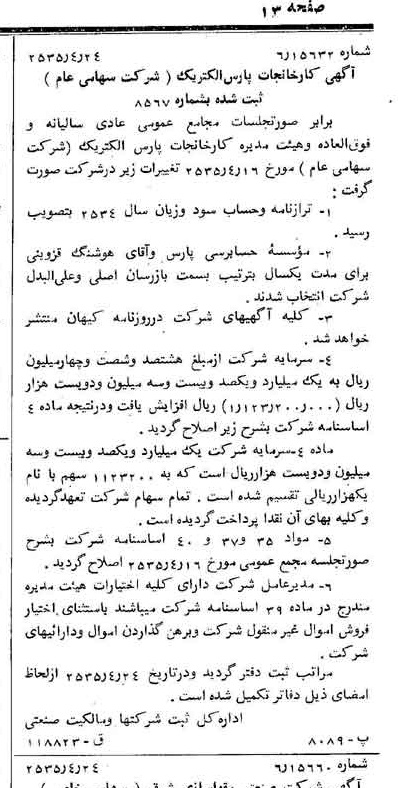 صفحه ۱۳
شماره ۶/۱۵۶۳۲ ۲۵۳۵/۴/۲۴
آگهی کارخانجات پارس‌الکتریک ( شرکت سهامی عام )
ثبت شده بشماره ۸۵۶۷
برابر صورتجلسات مجامع عمومی عادی سالیانه و
فوق‌العاده وهیئت مدیره کارخانجات پارس الکتریک (شرکت
سهامی عام ) مورخ ۲۵۳۵/۴/۱۶ تغییرات زیر درشرکت صورت
گرفت :
۱- ترازنامه وحساب سود وزیان سال ۲۵۳۴ بتصویب
رسید .
۲- مؤسسهٔ حسابرسی پارس وآقای هوشنگ قزوینی
برای مدت یکسال بترتیب بسمت بازرسان اصلی وعلی‌البدل
شرکت انتخاب شدند .
۳- کلیه آگهیهای شرکت درروزنامه کیهان منتشر
خواهد شد .
۴- سرمایه شرکت ازمبلغ هشتصد وشصت وچهارمیلیون
ریال به یک میلیارد ویکصد وبیست وسه میلیون ودویست هزار
ریال (۱/۱۲۳/۲۰۰/۰۰۰) ریال افزایش یافت ودرنتیجه ماده ۴
اساسنامه شرکت بشرح زیر اصلاح گردید .
ماده ۴-سرمایه شرکت یک میلیارد ویکصد وبیست وسه
میلیون ودویست هزارریال است که به ۱۱۲۳۲۰۰ سهم با نام
یکهزارریالی تقسیم شده است . تمام سهام شرکت تعهدگردیده
وکلیه بهای آن نقدا پرداخت گردیده است .
۵- مواد ۳۵ و۳۷ و ۴۰ اساسنامه شرکت بشرح
صورتجلسه مجمع عمومی مورخ ۲۵۳۵/۴/۱۶ اصلاح گردید .
۶- مدیرعامل شرکت دارای کلیه اختیارات هیئت مدیره
مندرج در ماده ۳۹ اساسنامه شرکت میباشند باستثنای اختیار
فروش اموال غیر منقول شرکت وبرهن گذاردن اموال ودارائیهای
شرکت .
مراتب ثبت دفتر گردید ودرتاریخ ۲۵۳۵/۴/۲۴ ازلحاظ
امضای ذیل دفاتر تکمیل شده است .
اداره کل ثبت شرکتها ومالکیت صنعتی
پ- ۸۰۸۹ ق- ۱۱۸۸۲۳
شماره ۶/۱۵۶۶۰ ۲۵۳۵/۴/۲۴